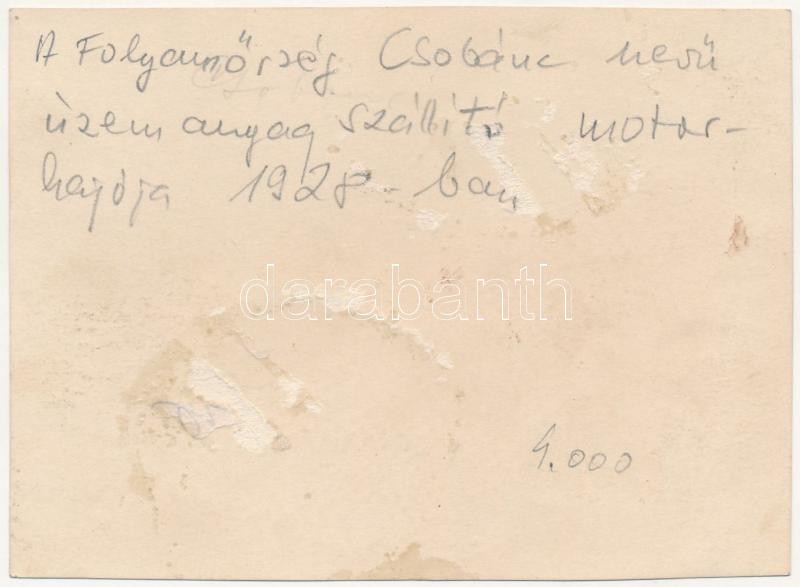 A Folyamőrség Csobánc nevű
üzemanyag szállító motor-
hajója 1928-ban
darabanth
4.000